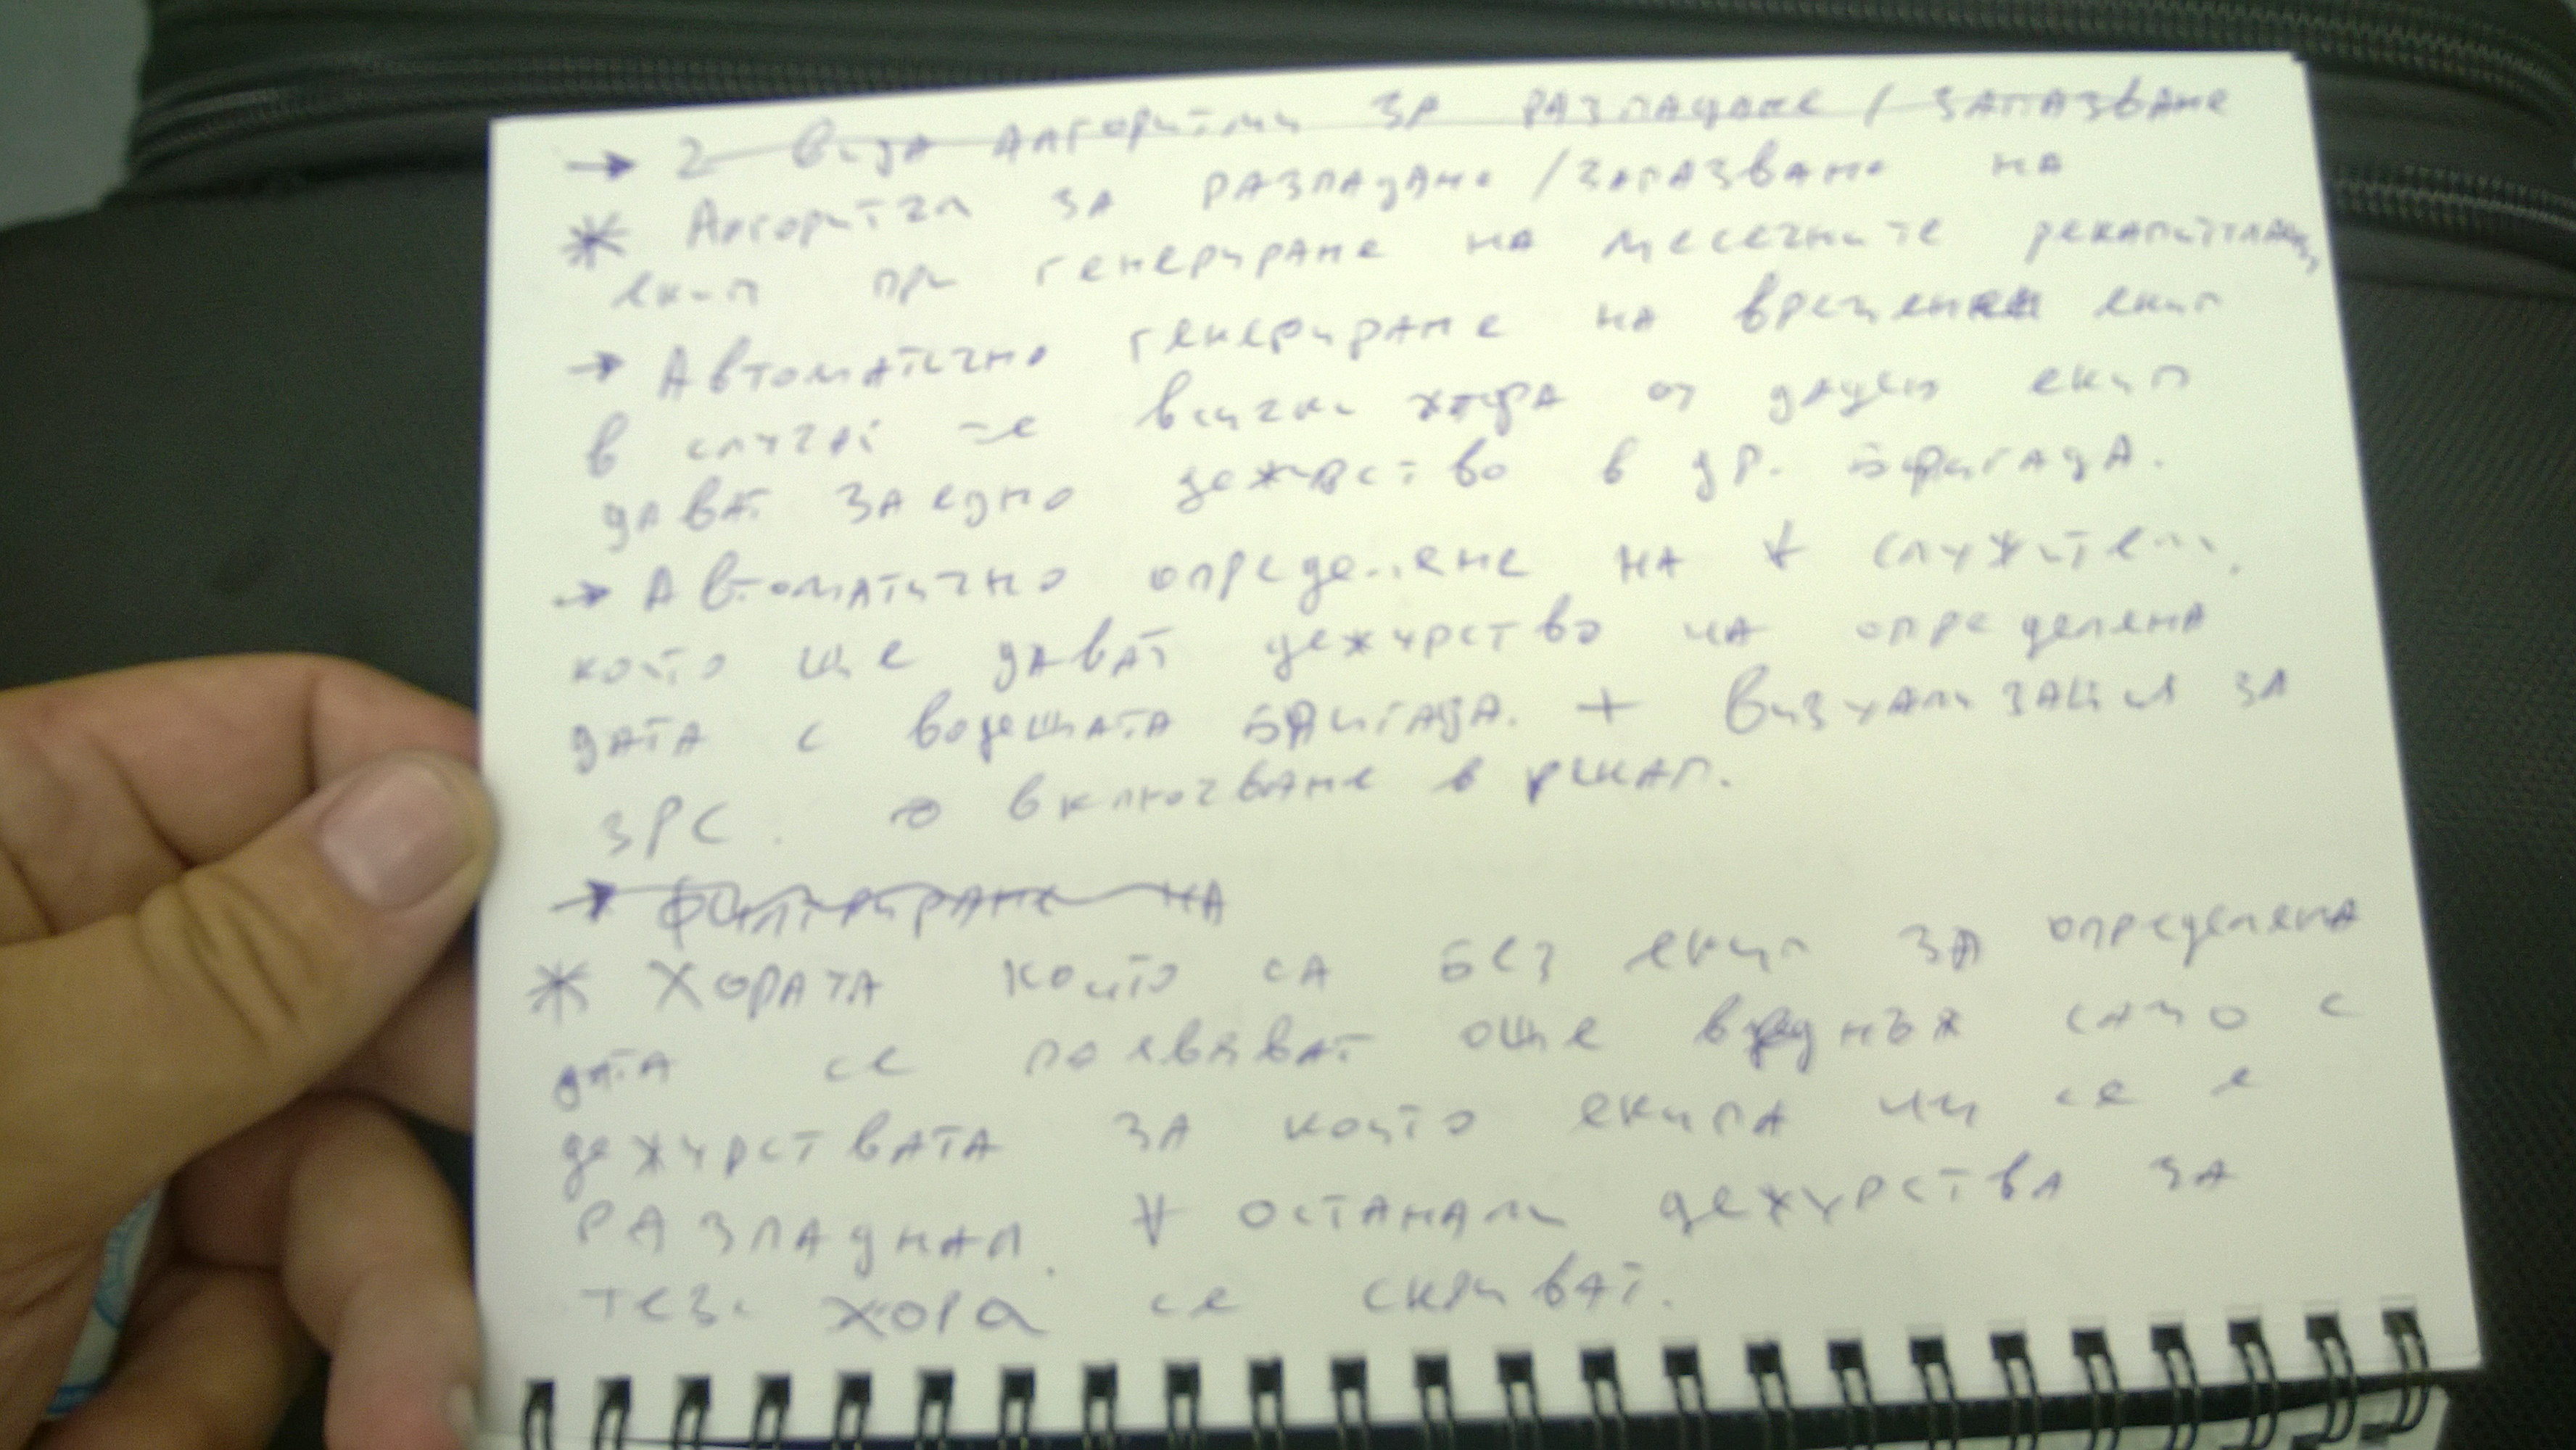 → 2 вида алгоритми за разпадане / запазване
* Алгоритъм за разпадане / запазване на
екип при генериране на месечните рекапитулации
→ Автоматично генериране на временен екип
в случай че всички хора от даден екип
дават заедно дежурство в др. бригада.
→ Автоматично определяне на ∀ служители,
които ще дават дежурство на определена
дата с водещата бригада. + Визуализация за
ЗРС. → включване в рекап.
→ Филтриране на
* Хората които са без екип за определена
дата се появяват още веднъж само с
дежурствата за които екипа им се е
разпаднал. ∀ останали дежурства за
тези хора се скриват.